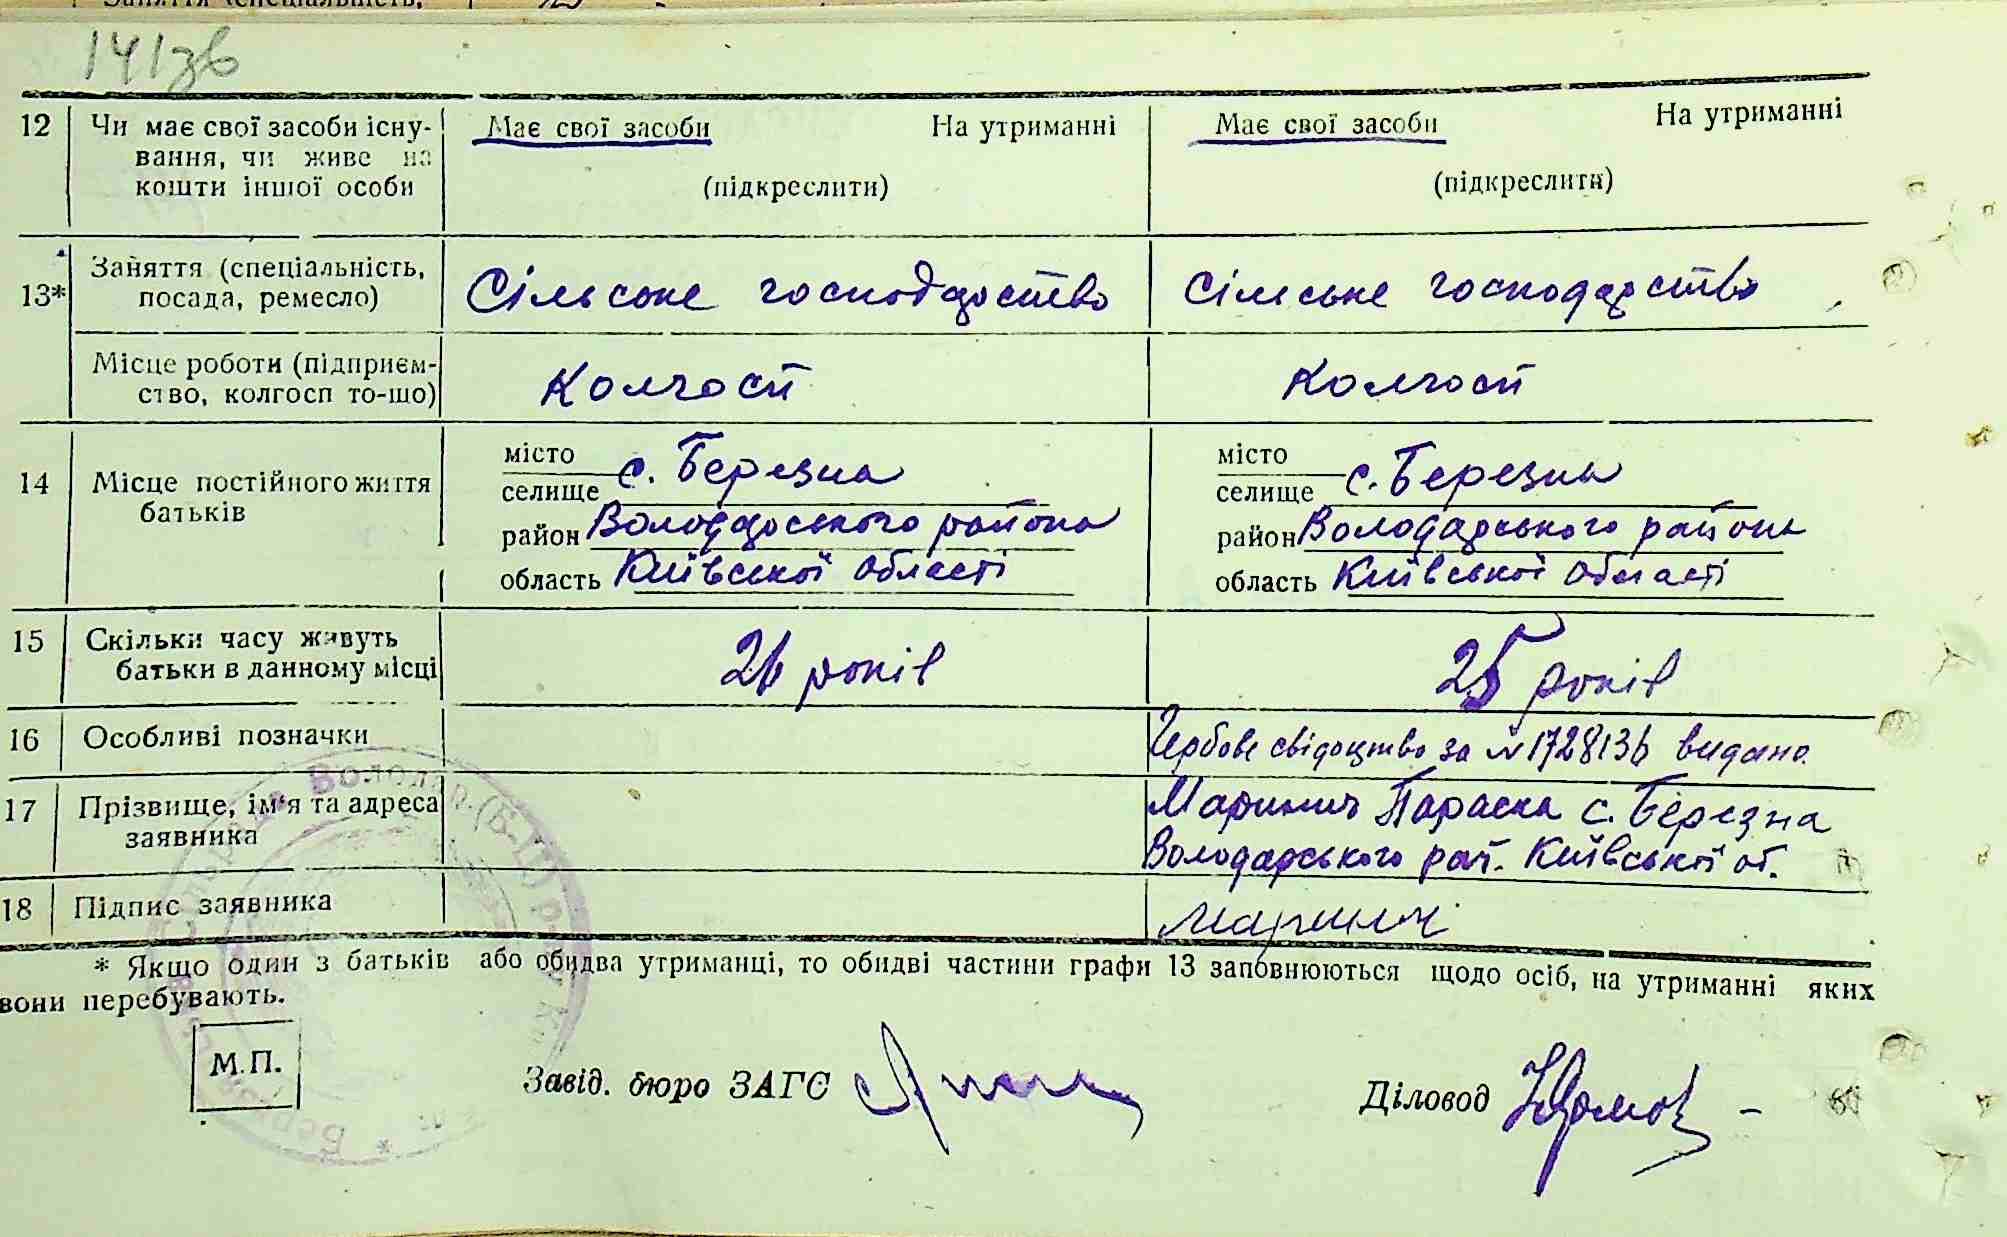 141зв
12 Чи має свої засоби існу- Має свої засоби На утриманні Має свої засоби На утриманні
вання, чи живе на
кошти іншої особи (підкреслити) (підкреслити)
13* Заняття (спеціальність, Сільське господарство Сільське господарство
посада, ремесло)
Місце роботи (підприєм- Колгосп Колгосп
ство, колгосп то-що)
14 Місце постійного життя місто с. Березна місто с. Березна
батьків селище селище
район Володарського района район Володарського района
область Київської області область Київської області
15 Скільки часу живуть 26 років 25 років
батьки в данному місці
16 Особливі позначки Гербове свідоцтво за № 1728136 видано
17 Прізвище, ім'я та адреса Маринич Параска с. Березна
заявника Володарського рай. Київської об.
18 Підпис заявника Маринич
* Якщо один з батьків або обидва утриманці, то обидві частини графи 13 заповнюються щодо осіб, на утриманні яких
вони перебувають.
М.П. Завід. бюро ЗАГС Діловод